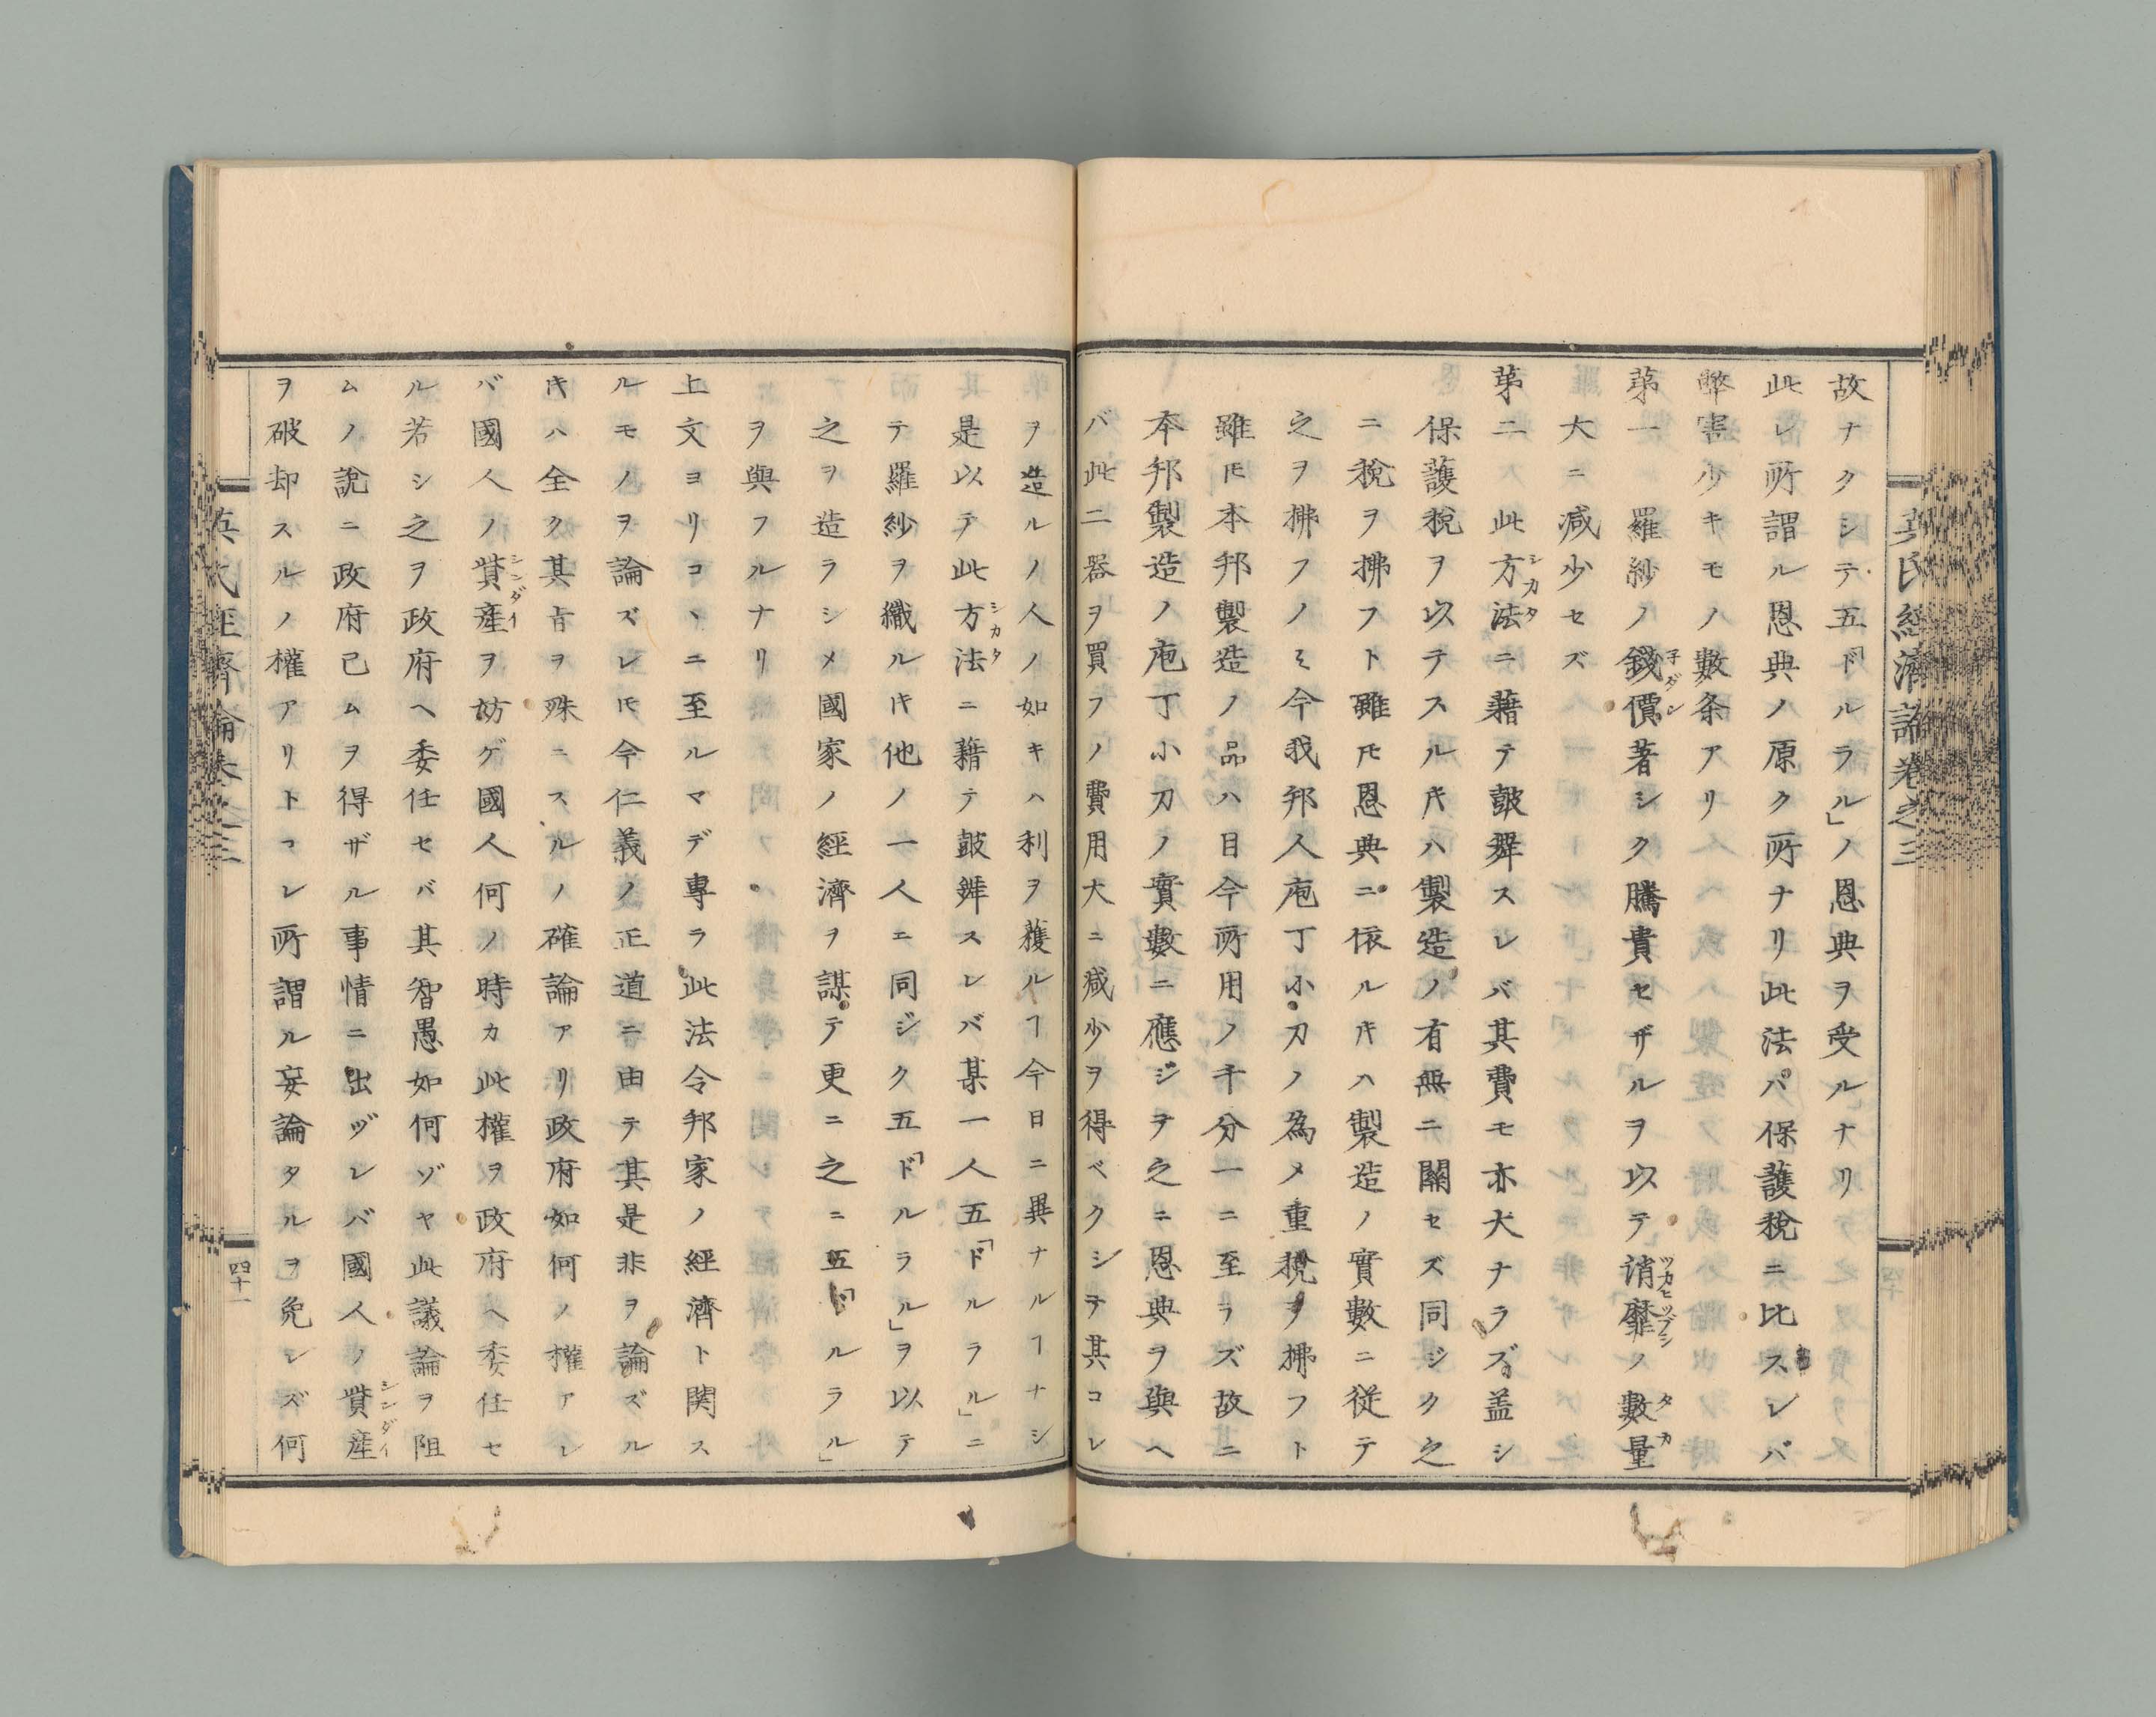 英氏經濟論卷之三
故ナクシテ五「ドルラル」ノ恩典ヲ受ルナリ
此レ所謂ル恩典ノ原ク所ナリ此法パ保護稅ニ比スレバ
弊害少キモノ數条アリ
第一 羅紗ノ錢價著シク騰貴セザルヲ以テ消靡ノ數量
子ダン
ツカヒツブシ
タカ
大ニ減少セズ
第二 此方法ニ藉テ鼓舞スレバ其費モ亦大ナラズ盖シ
シカタ
保護稅ヲ以テスルキハ製造ノ有無ニ關セズ同ジク之
ニ稅ヲ拂フト雖モ恩典ニ依ルキハ製造ノ實數ニ従テ
之ヲ拂フノミ今我邦人庖丁小刀ノ為メ重稅ヲ拂フト
雖モ本邦製造ノ品ハ目今所用ノ千分一ニ至ラズ故ニ
本邦製造ノ庖丁小刀ノ實數ニ應ジヲ之ニ恩典ヲ與ヘ
バ此二器ヲ買フノ費用大ニ減少ヲ得ベクシテ其コレ
ヲ造ルノ人ノ如キハ利ヲ獲ルヿ今日ニ異ナルヿナシ
是以テ此方法ニ藉テ鼓舞スレバ某一人五「ドルラル」ニ
シカタ
テ羅紗ヲ織ルキ他ノ一人エ同ジク五「ドルラル」ヲ以テ
之ヲ造ラシメ國家ノ經濟ヲ謀テ更ニ之ニ五「ドルラル」
ヲ與フルナリ
上文ヨリコヽニ至ルマデ專ラ此法令邦家ノ經濟ト関ス
ルモノヲ論ズレモ今仁義ノ正道ニ由テ其是非ヲ論ズル
キハ全ク其旨ヲ殊ニスルノ確論アリ政府如何ノ權アレ
バ國人ノ貲產ヲ妨ゲ國人何ノ時カ此權ヲ政府ヘ委任セ
シンダイ
ル若シ之ヲ政府ヘ委任セバ其智愚如何ゾヤ此議論ヲ阻
ムノ說ニ政府已ムヲ得ザル事情ニ出ヅレバ國人ノ貲產
シンダイ
ヲ破却スルノ權アリトコレ所謂ル妄論タルヲ免レズ何
英氏經濟論卷之三
四十一